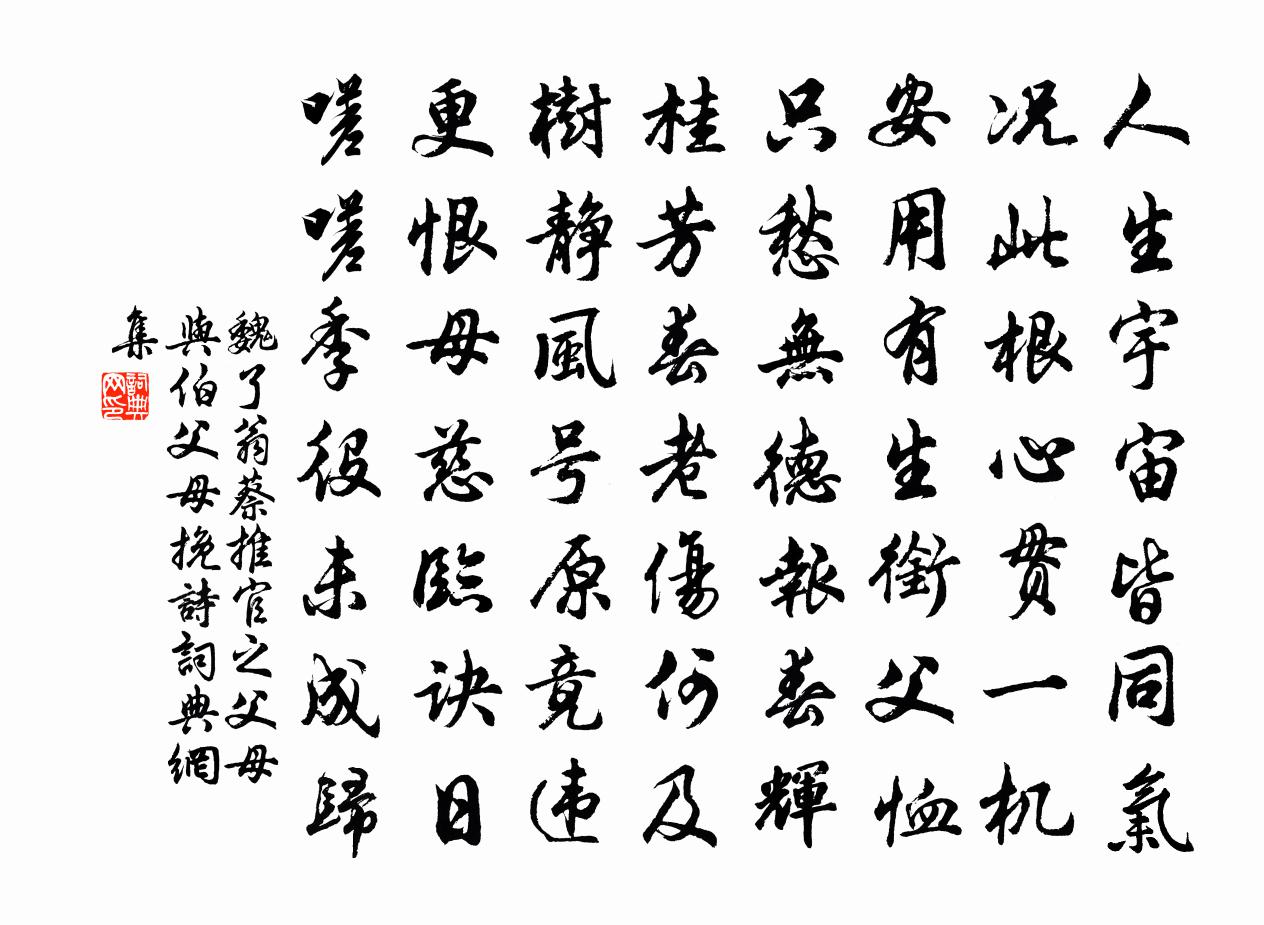 人生宇宙皆同氣
况此根心贯一机
安用有生銜父恤
只愁無德報春輝
桂芳春老傷何及
樹静風号原竟违
更恨母慈臨诀日
嗟嗟季役未成歸
魏了翁蔡推官之父母
與伯父母挽詩詞典網
集
詞典网印